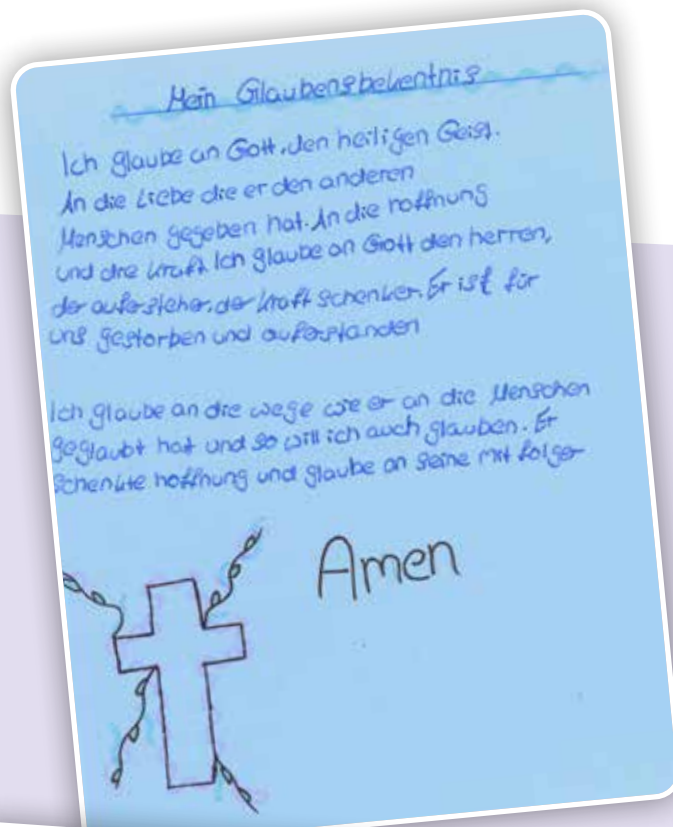 Mein Glaubensbekentnis
Ich glaube an Gott, den heiligen Geist.
An die Liebe die er den anderen
Menschen gegeben hat. An die hoffnung
und die kraft Ich glaube an Gott den herren,
der aufersteher, der kraft schenker. Er ist für
uns gestorben und auferstanden
Ich glaube an die wege wie er an die Menschen
geglaubt hat und so will ich auch glauben. Er
schenkte hoffnung und glaube an seine mit folger
Amen